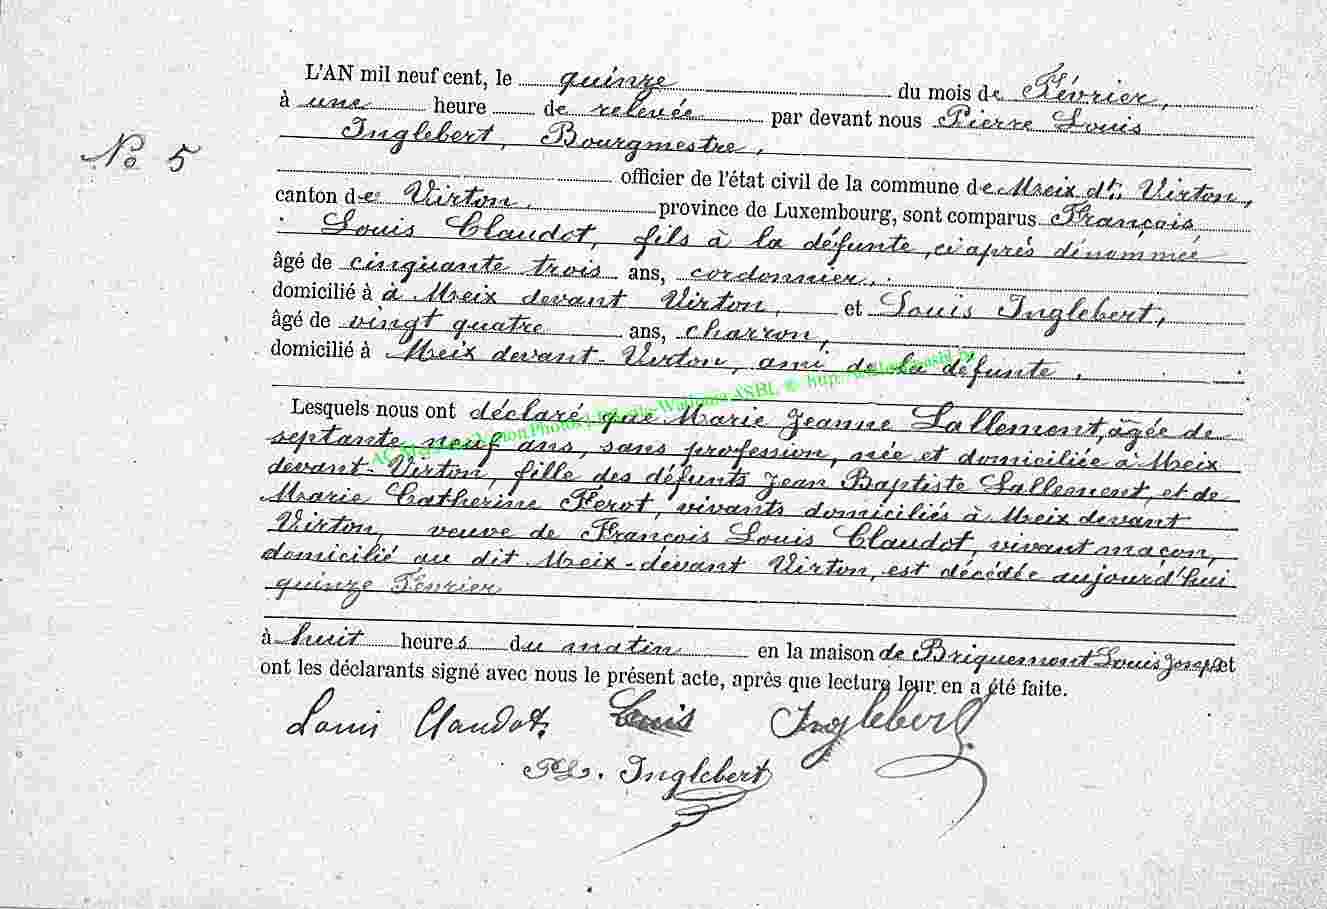 L'AN mil neuf cent, le quinze du mois de Février,
à une heure de relevée par devant nous Pierre Louis
Inglebert, Bourgmestre,
No 5
officier de l'état civil de la commune de Meix dt. Virton,
canton de Virton, province de Luxembourg, sont comparus François
Louis Claudot, fils à la défunte, ci après dénommée
âgé de cinquante trois ans, cordonnier,
domicilié à à Meix devant Virton, et Louis Inglebert,
âgé de vingt quatre ans, charron,
domicilié à Meix devant-Virton, ami de la défunte.
Lesquels nous ont déclaré que Marie Jeanne Lallement, âgée de
septante neuf ans, sans profession, née et domiciliée à Meix
devant-Virton, fille des défunts Jean Baptiste Lallement, et de
Marie Catherine Férot, vivants domiciliés à Meix devant
Virton, veuve de François Louis Claudot, vivant maçon,
domicilié au dit Meix-devant Virton, est décédée aujourd'hui
quinze Février
à huit heures du matin en la maison de Briquemont Louis Joseph et
ont les déclarants signé avec nous le présent acte, après que lecture leur en a été faite.
Louis Claudot Louis Inglebert
PL. Inglebert